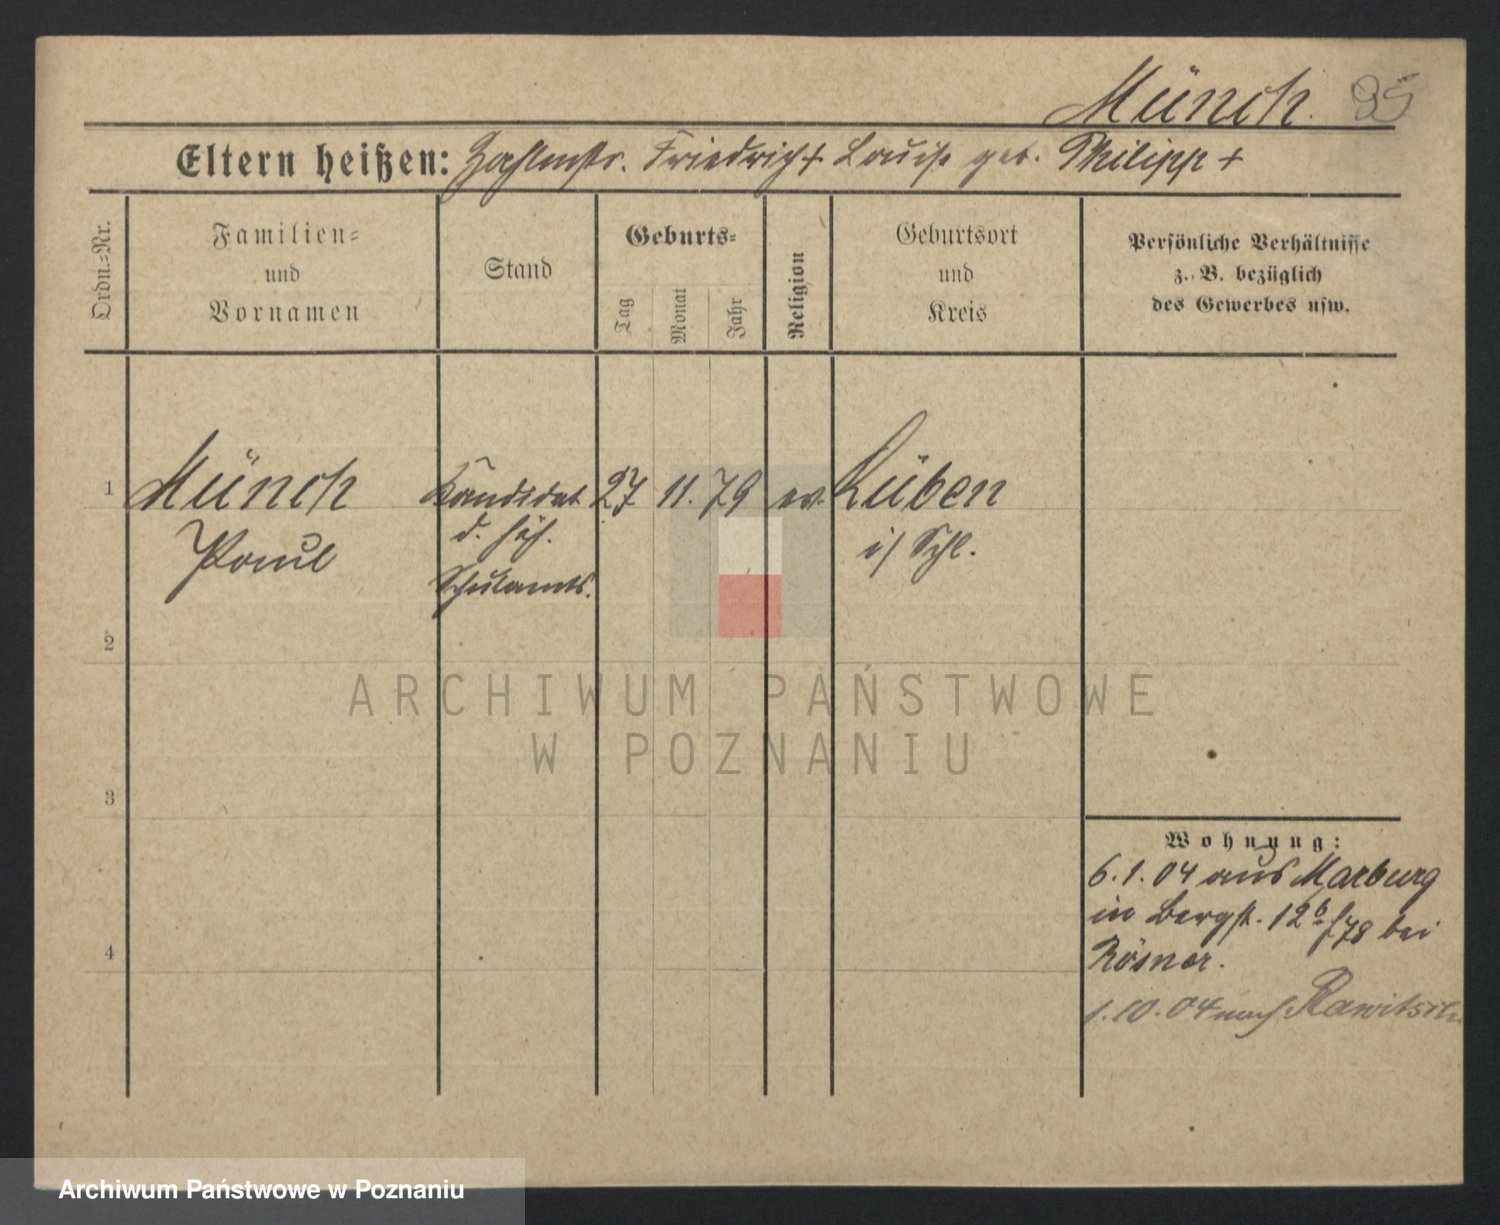 Münch. 95
Eltern heißen: Zahlmstr. Friedrich † Louise geb. Philipp †
Ordn.-Nr.
Familien-
und
Vornamen
Stand
Geburts-
Tag
Monat
Jahr
Religion
Geburtsort
und
Kreis
Persönliche Verhältnisse
z. B. bezüglich
des Gewerbes usw.
1 Münch Kandidat 27 11. 79 ev. Lüben
Paul d. höh. i/ Schl.
Schulamts.
2
3
4
ARCHIWUM PAŃSTWOWE
W POZNANIU
Wohnung:
6. 1. 04 aus Marburg
in Bergst. 12b f78 bei
Rösner.
1. 10. 04 nach Rawitsch
Archiwum Państwowe w Poznaniu